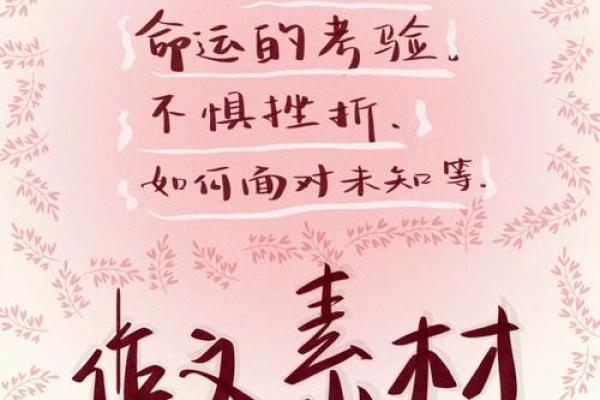 命运的考验。
不惧挫折、
如何面对未知等.
作文素材